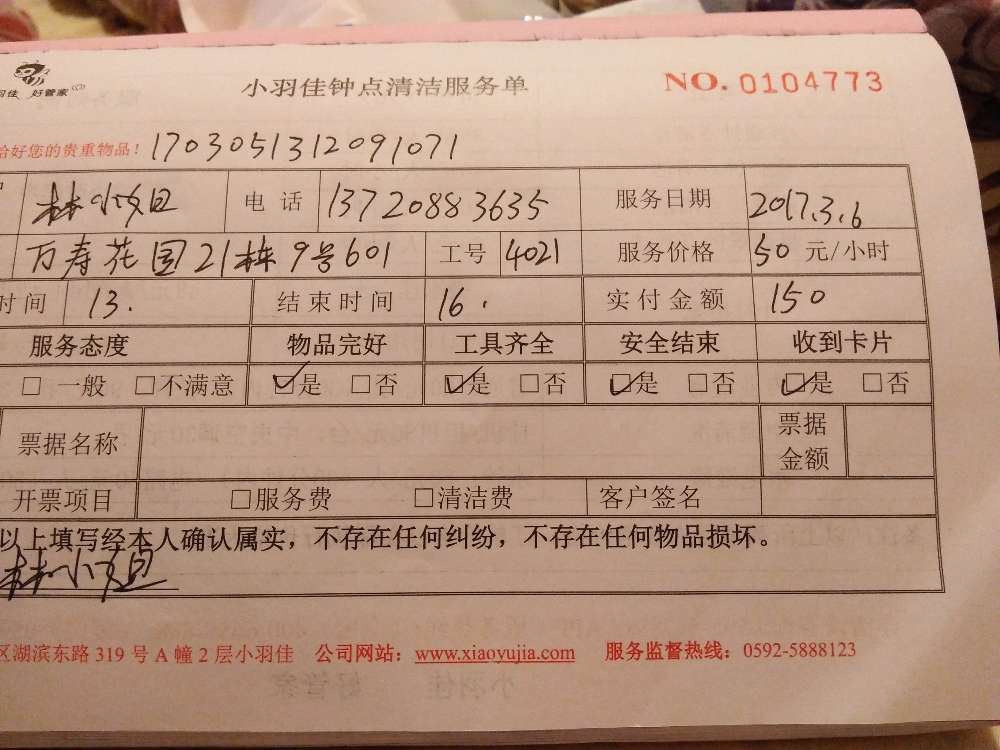 羽佳 好管家
小羽佳钟点清洁服务单
NO. 0104773
合好您的贵重物品！ 1703051312091071
林小姐 电话 13720883635 服务日期 2017.3.6
万寿花园21栋9号601 工号 4021 服务价格 50 元/小时
时间 13. 结束时间 16. 实付金额 150
服务态度 物品完好 工具齐全 安全结束 收到卡片
□ 一般 □不满意 ☑是 □否 ☑是 □否 ☑是 □否 ☑是 □否
票据名称 票据金额
开票项目 □服务费 □清洁费 客户签名
以上填写经本人确认属实，不存在任何纠纷，不存在任何物品损坏。
林小姐
区湖滨东路 319 号 A 幢 2 层小羽佳 公司网站：www.xiaoyujia.com 服务监督热线：0592-5888123